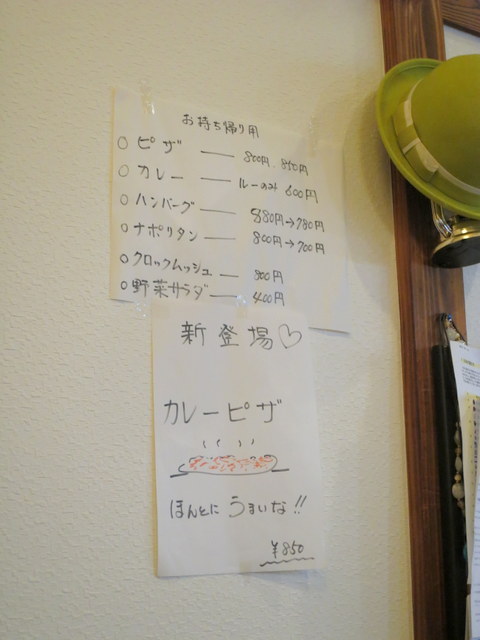 お持ち帰り用
○ピザ — 800円、850円
○カレー — ルーのみ 600円
○ハンバーグ — 880円→780円
○ナポリタン — 800円→700円
○クロックムッシュ — 300円
○野菜サラダ — 400円
新登場♡
カレーピザ
ほんとに うまいな!!
¥850